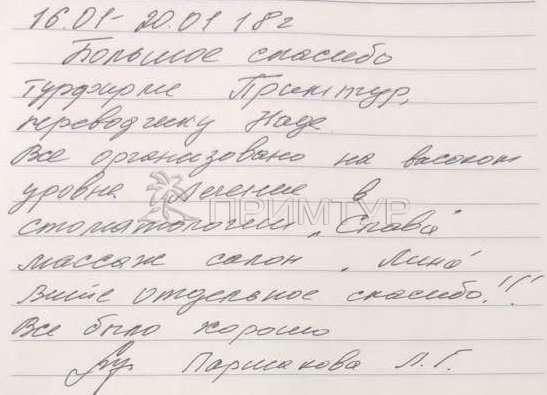 16.01 - 20.01 18г
Большое спасибо
турфирме Примтур,
переводчику Наде
Все организовано на высоком
уровне лечение в
ПРИМТУР
стоматологии "Слава"
массаж салон "Лина"
Вите отдельное спасибо!!!
Все было хорошо
Паршакова Л.Г.